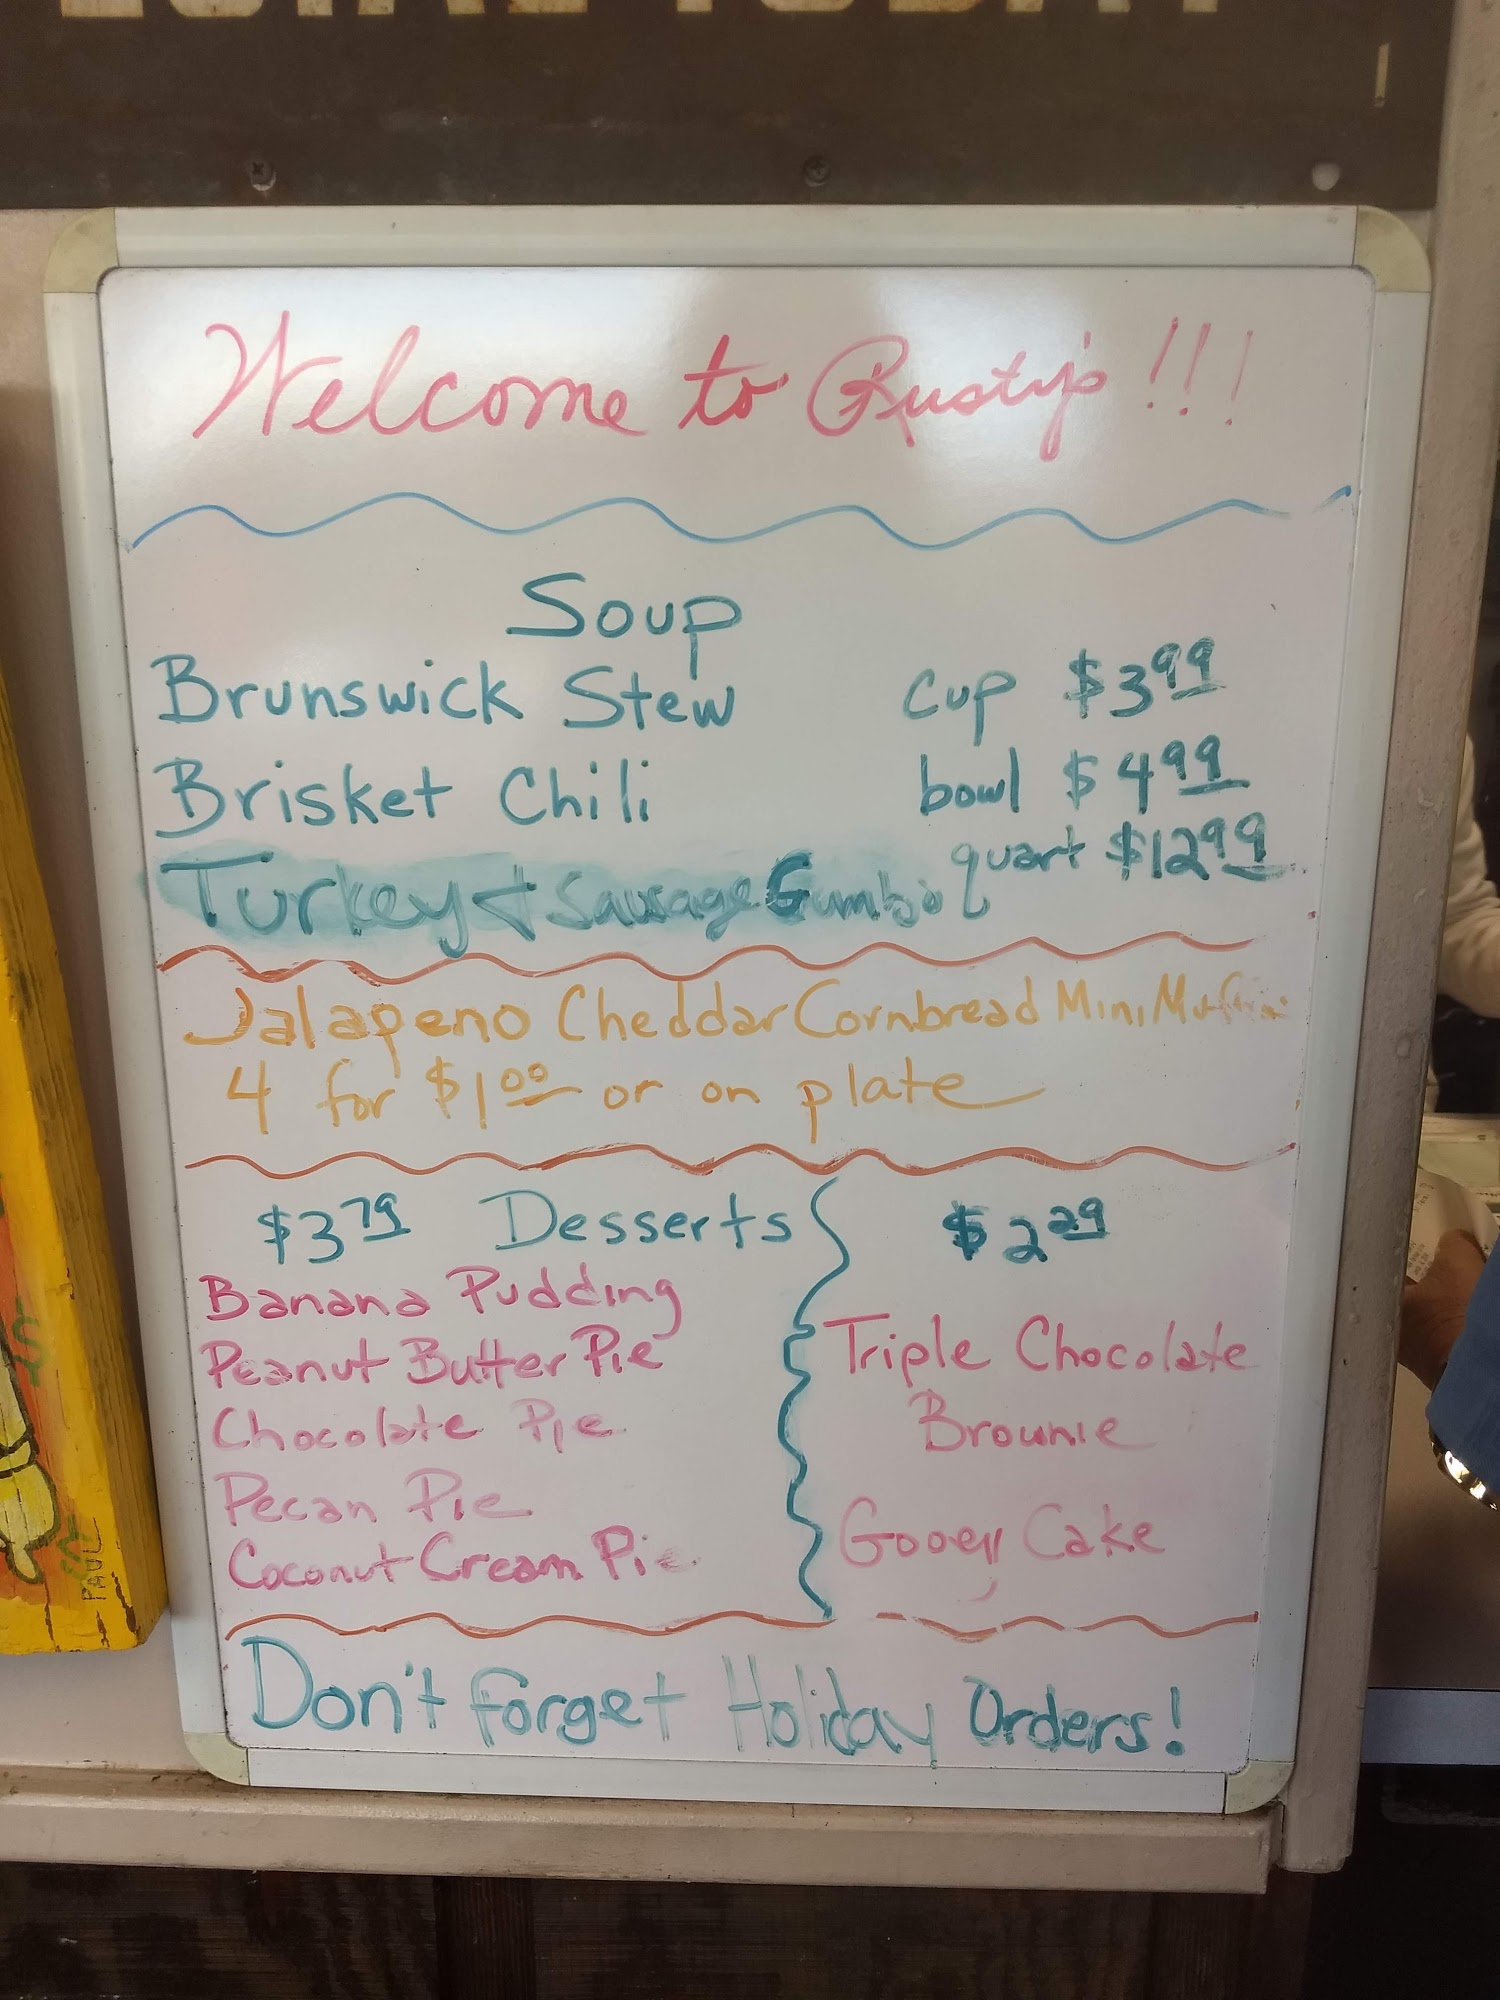 Welcome to Rusty's!!!
Soup
Brunswick Stew cup $3.99
Brisket Chili bowl $4.99
Turkey + Sausage Gumbo quart $12.99
Jalapeno Cheddar Cornbread Mini Muffins
4 for $1.00 or on plate
$3.79 Desserts
Banana Pudding
Peanut Butter Pie
Chocolate Pie
Pecan Pie
Coconut Cream Pie
$2.29
Triple Chocolate
Brownie
Gooey Cake
Don't forget Holiday Orders!
PAUL